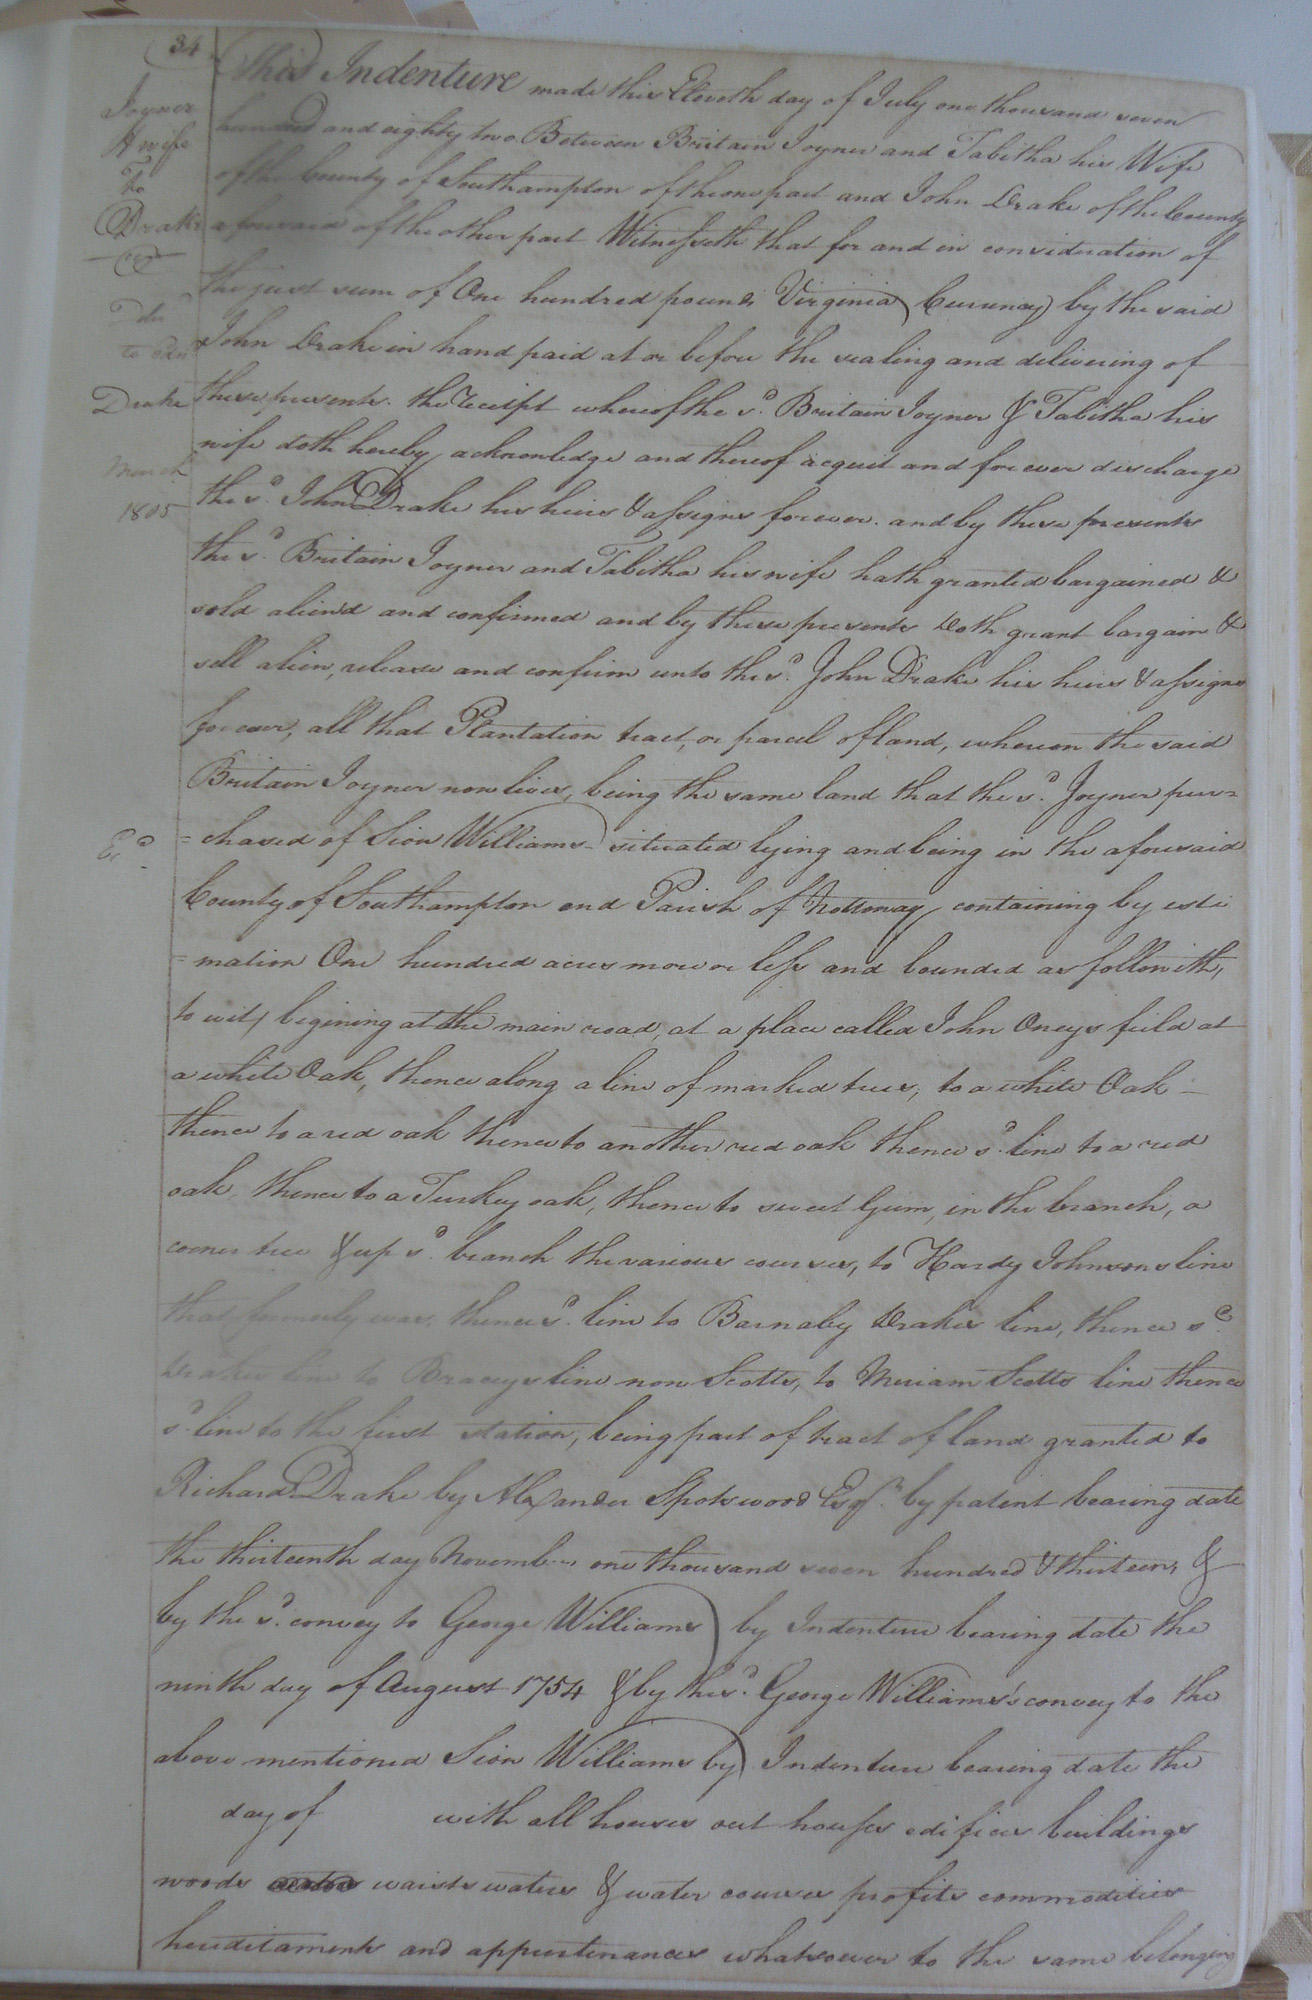 34
Joyner
& wife
To
Drake
Exd
Dd
to Edw
Drake
March
1805
Exd
This Indenture made this Eleventh day of July one thousand seven
hundred and eighty two Between Britain Joyner and Tabitha his Wife
of the County of Southampton of the one part and John Drake of the County
aforesaid of the other part Witnesseth that for and in consideration of
the just sum of One hundred pounds Virginia Currency by the said
John Drake in hand paid at or before the sealing and delivering of
these presents. the receipt whereof the sd. Britain Joyner & Tabitha his
wife doth hereby acknowledge and thereof acquit and forever discharge
the sd. John Drake his heirs & assigns forever. and by these presents
the sd. Britain Joyner and Tabitha his wife hath granted bargained &
sold aliend and confirmed and by these presents doth grant bargain &
sell alien, release and confirm unto the sd. John Drake his heirs & assigns
forever, all that Plantation tract, or parcel of land, whereon the said
Britain Joyner now lives, being the same land that the sd. Joyner pur=
=chased of Sion Williams situated lying and being in the aforesaid
County of Southampton and Parish of Nottoway, containing by esti
=mation One hundred acres more or less and bounded as followith,
to wit, begining at the main road, at a place called John Oneys feild at
a white Oak, thence along a line of marked trees, to a white Oak
thence to a red oak thence to another red oak thence sd. line to a red
oak, thence to a Turkey oak, thence to sweet Gum, in the branch, a
corner tree & up sd. branch the various courses, to Hardy Johnsons line
that formerly was, thence sd. line to Barnaby Drakes line, thence sd.
Drakes line to Braceys line now Scotts, to Miriam Scotts line thence
sd. line to the first station, being part of tract of land granted to
Richard Drake by Alexander Spotswood Esqr. by patent bearing date
the thirteenth day November one thousand seven hundred & thirteen, &
by the sd. convey to George Williams by Indenture bearing date the
ninth day of August 1754 & by the sd. George Williams's convey to the
above mentioned Sion Williams by Indenture bearing date the
day of with all houses out houses edifices buildings
woods waists waters & water courses profits commodities
hereditaments and appurtenances whatsoever to the same belonging